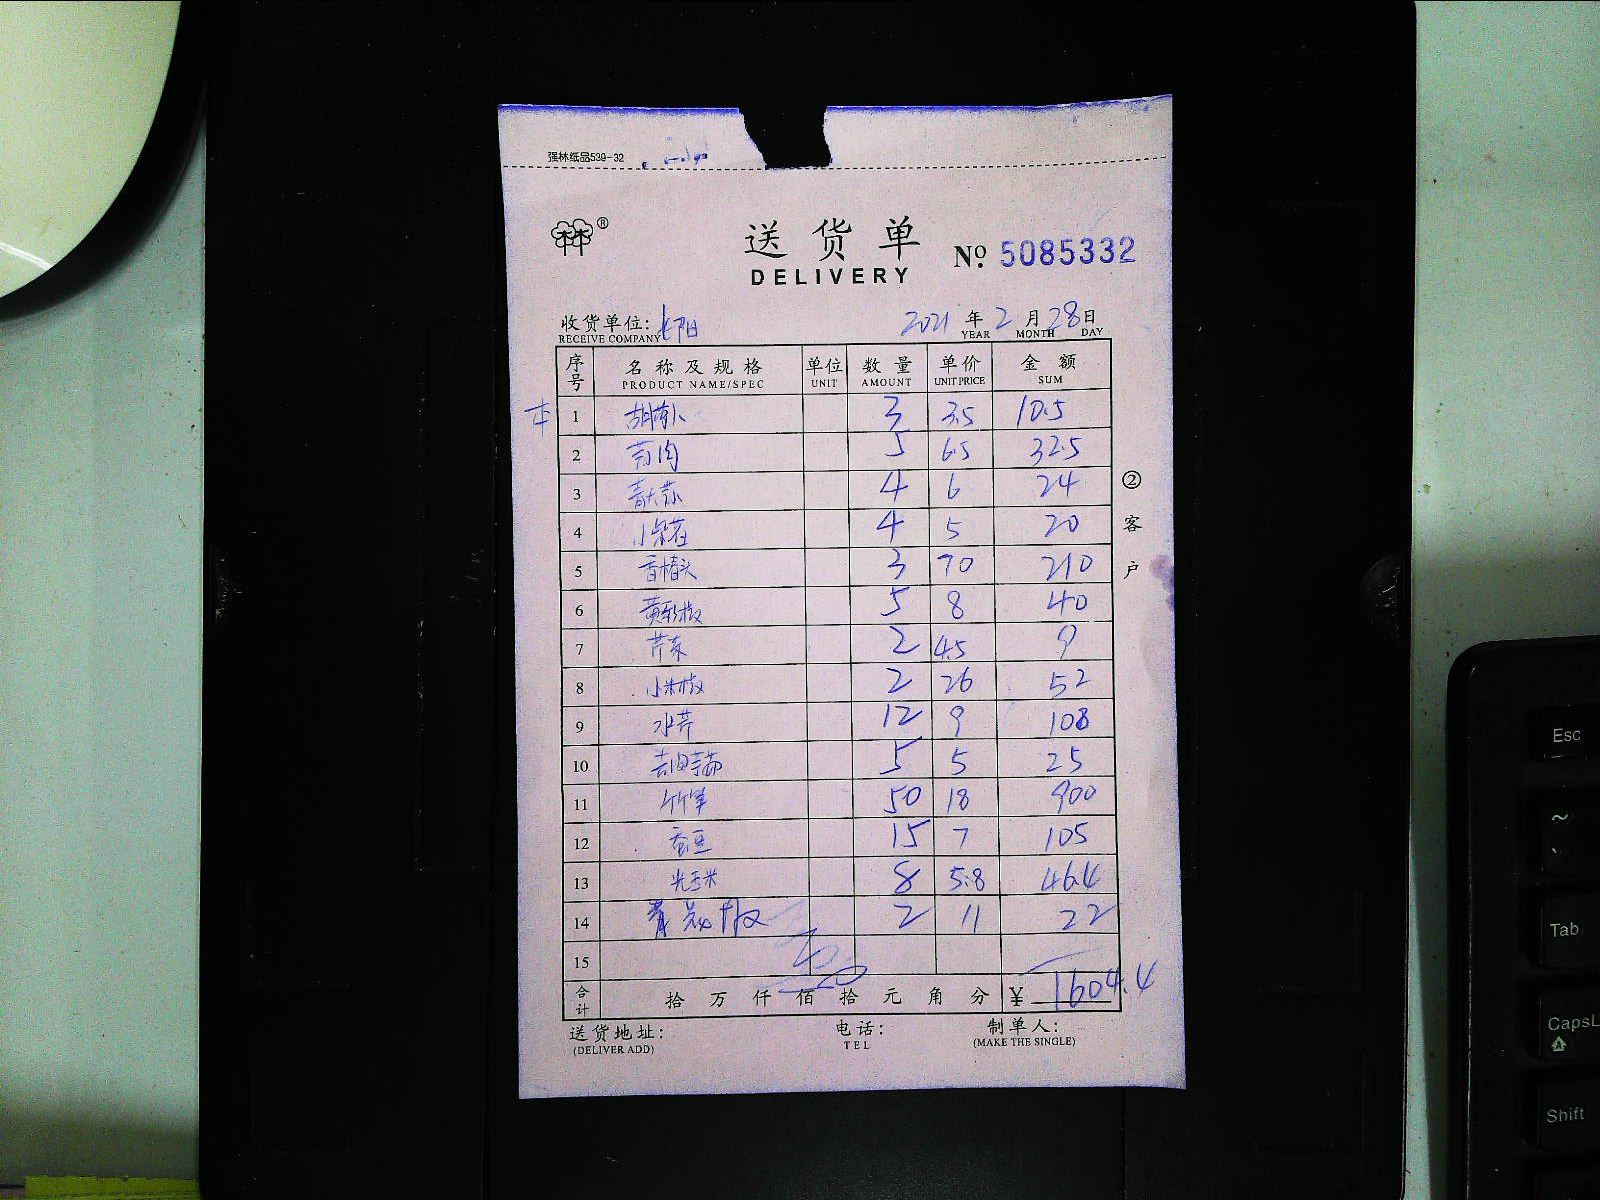 强林纸品539-32
林®
送货单
DELIVERY
No. 5085332
收货单位: 长阳 2021 年 2 月 28 日
RECEIVE COMPANY YEAR MONTH DAY
序号 名称及规格 单位 数量 单价 金额
PRODUCT NAME/SPEC UNIT AMOUNT UNIT PRICE SUM
1 胡萝卜 3 3.5 10.5
2 5 6.5 32.5
3 青大蒜 4 6 24
4 4 5 20
5 香椿头 3 70 210
6 黄彩椒 5 8 40
7 芹菜 2 4.5 9
8 小米椒 2 26 52
9 水芹 12 9 108
10 5 5 25
11 竹笋 50 18 900
12 蚕豆 15 7 105
13 光玉米 8 5.8 46.4
14 2 11 22
15
合计 拾 万 仟 佰 拾 元 角 分 ¥ 1604.4
送货地址: 电话: 制单人:
(DELIVER ADD) TEL (MAKE THE SINGLE)
② 客户
Esc
~
Tab
CapsL
Shift